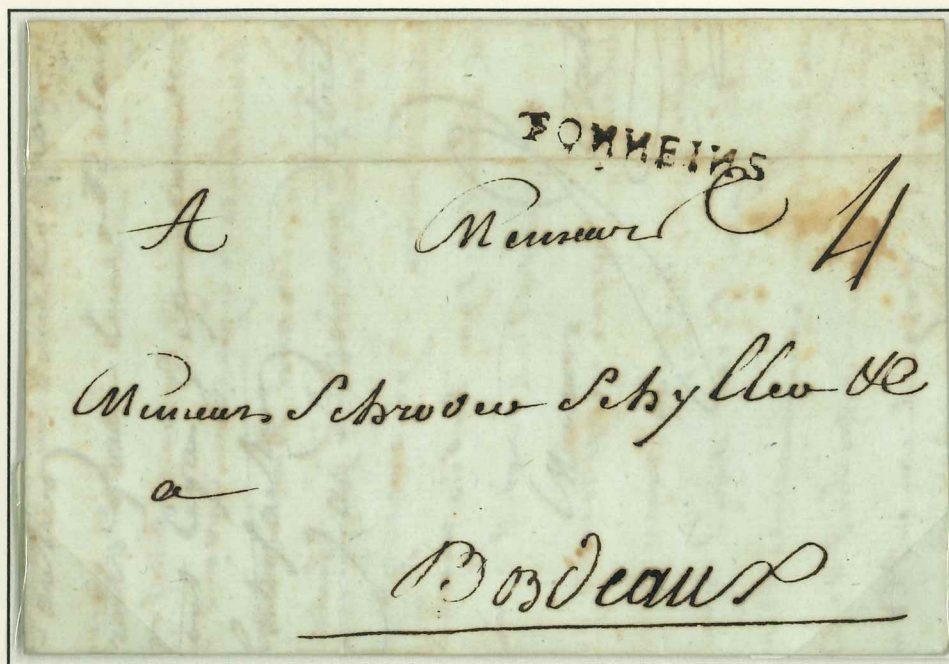 TONNEINS
A Messieurs 4
Messieurs Schroder Schyller &C
a
Bordeaux